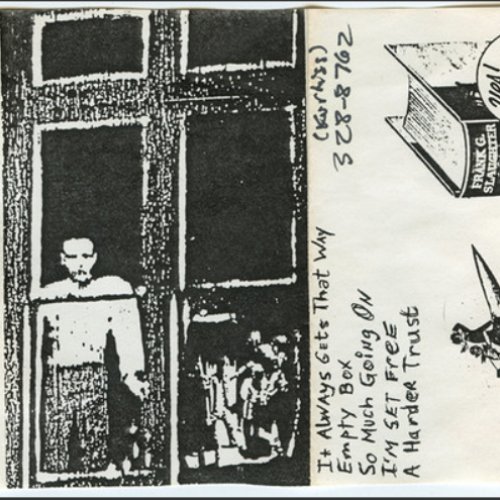 It ALWAYS GETS THAT WAY
EMPTY BOX
SO MUCH GOING ON
I'M SET FREE
A HARDER TRUST
328-8762
FRANK G.
SLAUGHTER